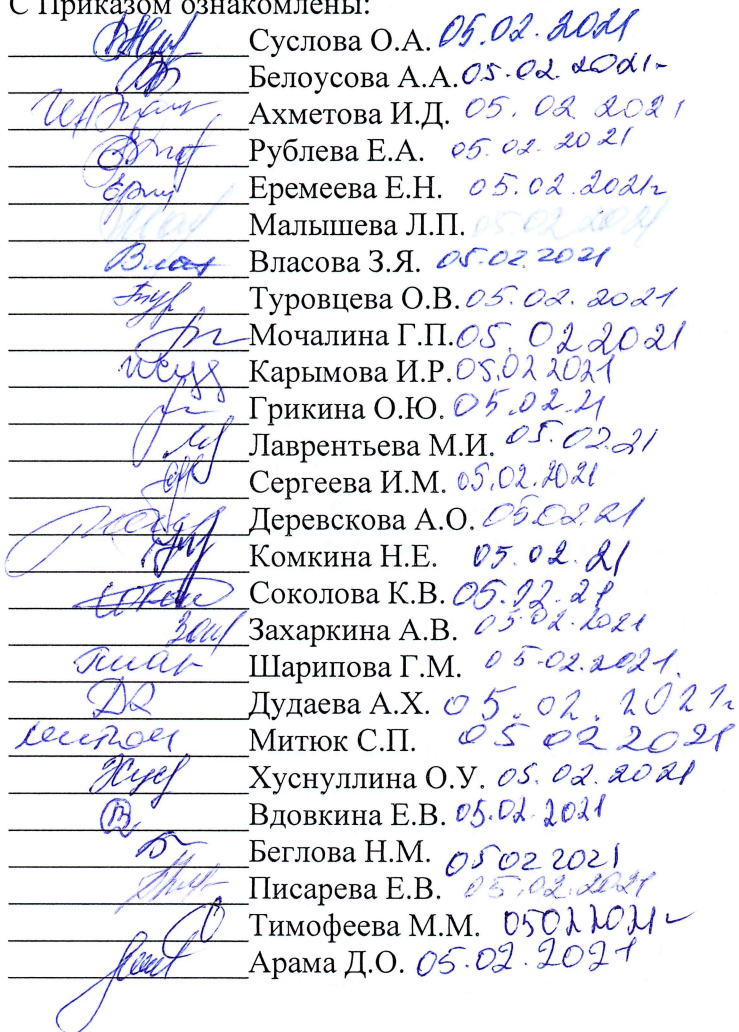 С Приказом ознакомлены:
Суслова О.А. 05.02.2021
Белоусова А.А. 05.02.2021г
Ахметова И.Д. 05.02.2021
Рублева Е.А. 05.02.2021
Еремеева Е.Н. 05.02.2021г
Малышева Л.П. 05.02.2021
Власова З.Я. 05.02.2021
Туровцева О.В. 05.02.2021
Мочалина Г.П. 05.02 2021
Карымова И.Р. 05.02 2021
Грикина О.Ю. 05.02.21
Лаврентьева М.И. 05.02.21
Сергеева И.М. 05.02.2021
Деревскова А.О. 05.02.21
Комкина Н.Е. 05.02.21
Соколова К.В. 05.02.21
Захаркина А.В. 05.02.2021
Шарипова Г.М. 05.02.2021.
Дудаева А.Х. 05.02.2021г
Митюк С.П. 05 02 2021
Хуснуллина О.У. 05.02.2021
Вдовкина Е.В. 05.02.2021
Беглова Н.М. 05 02 2021
Писарева Е.В. 05.02.2021
Тимофеева М.М. 05022021г
Арама Д.О. 05.02.2021